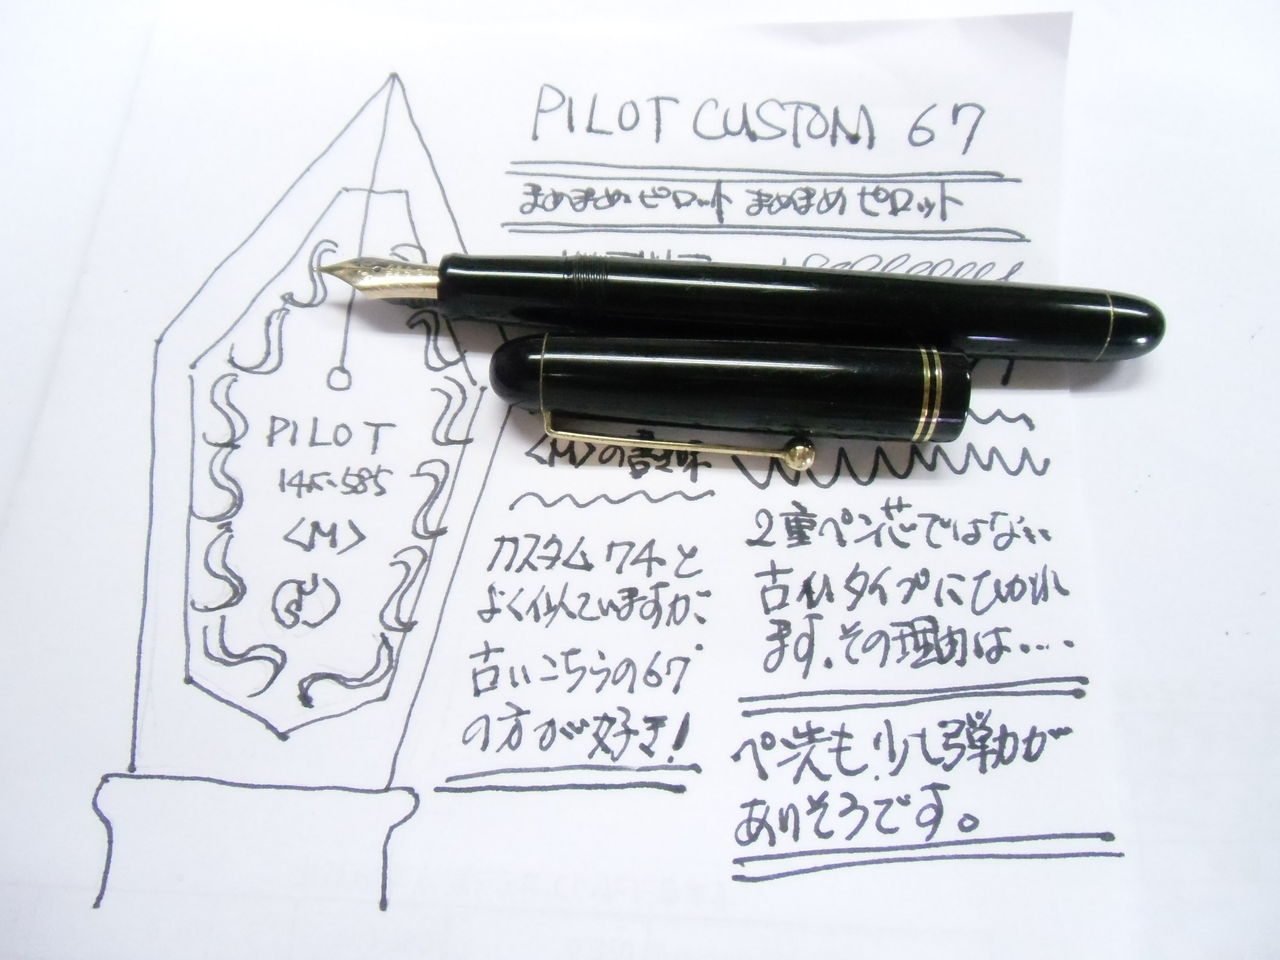 PILOT CUSTOM 67
まめまめピロット まめまめピロット
PILOT
14K-585
<M>
<M>の意味
カスタム74と
よく似ていますが、
古いこちらの67
の方が好き!
2重ペン芯ではない
古いタイプにひかれ
ます。その理由は....
ペン先も、少し弾力が
ありそうです。